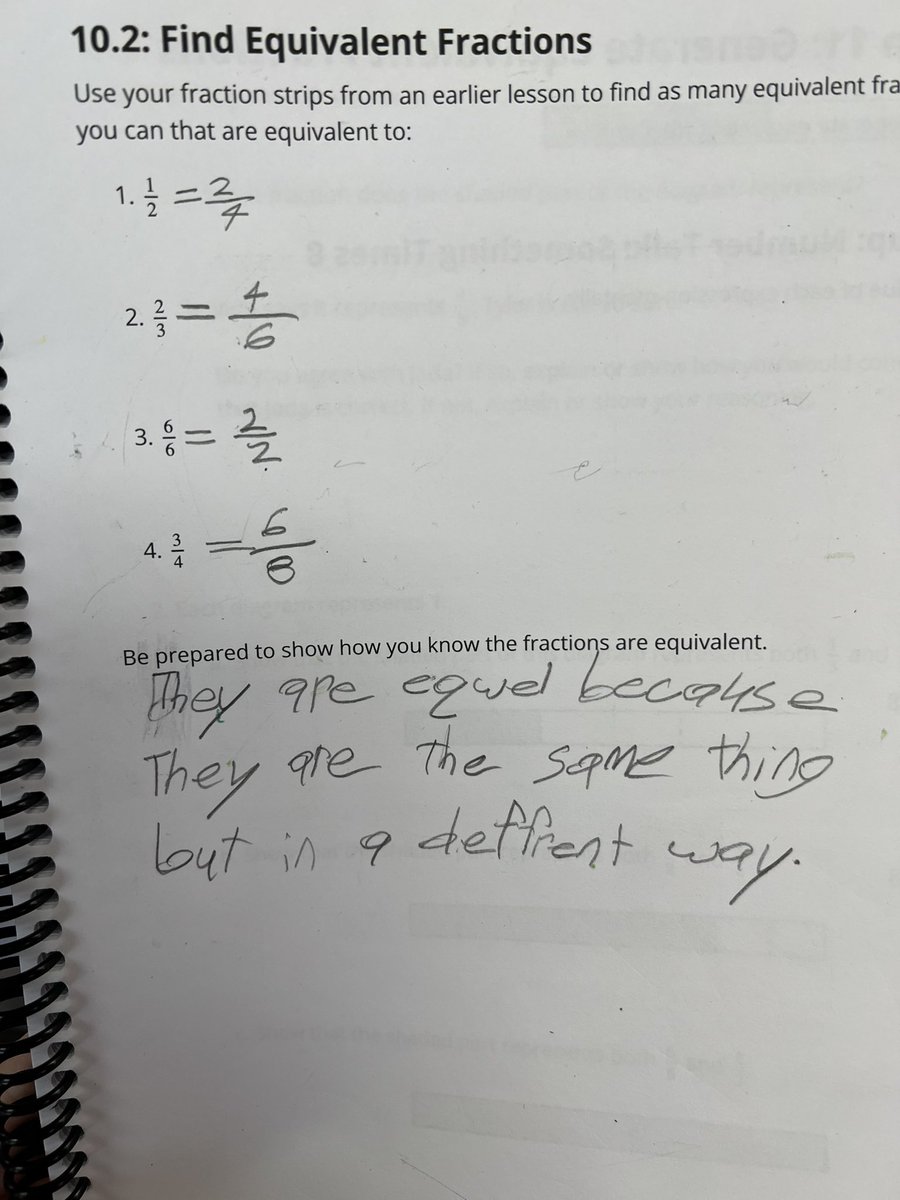 10.2: Find Equivalent Fractions
Use your fraction strips from an earlier lesson to find as many equivalent fra
you can that are equivalent to:
1. 1/2 = 2/4
2. 2/3 = 4/6
3. 6/6 = 2/2
4. 3/4 = 6/8
Be prepared to show how you know the fractions are equivalent.
They are eqwel because
They are the same thing
but in a deffrent way.